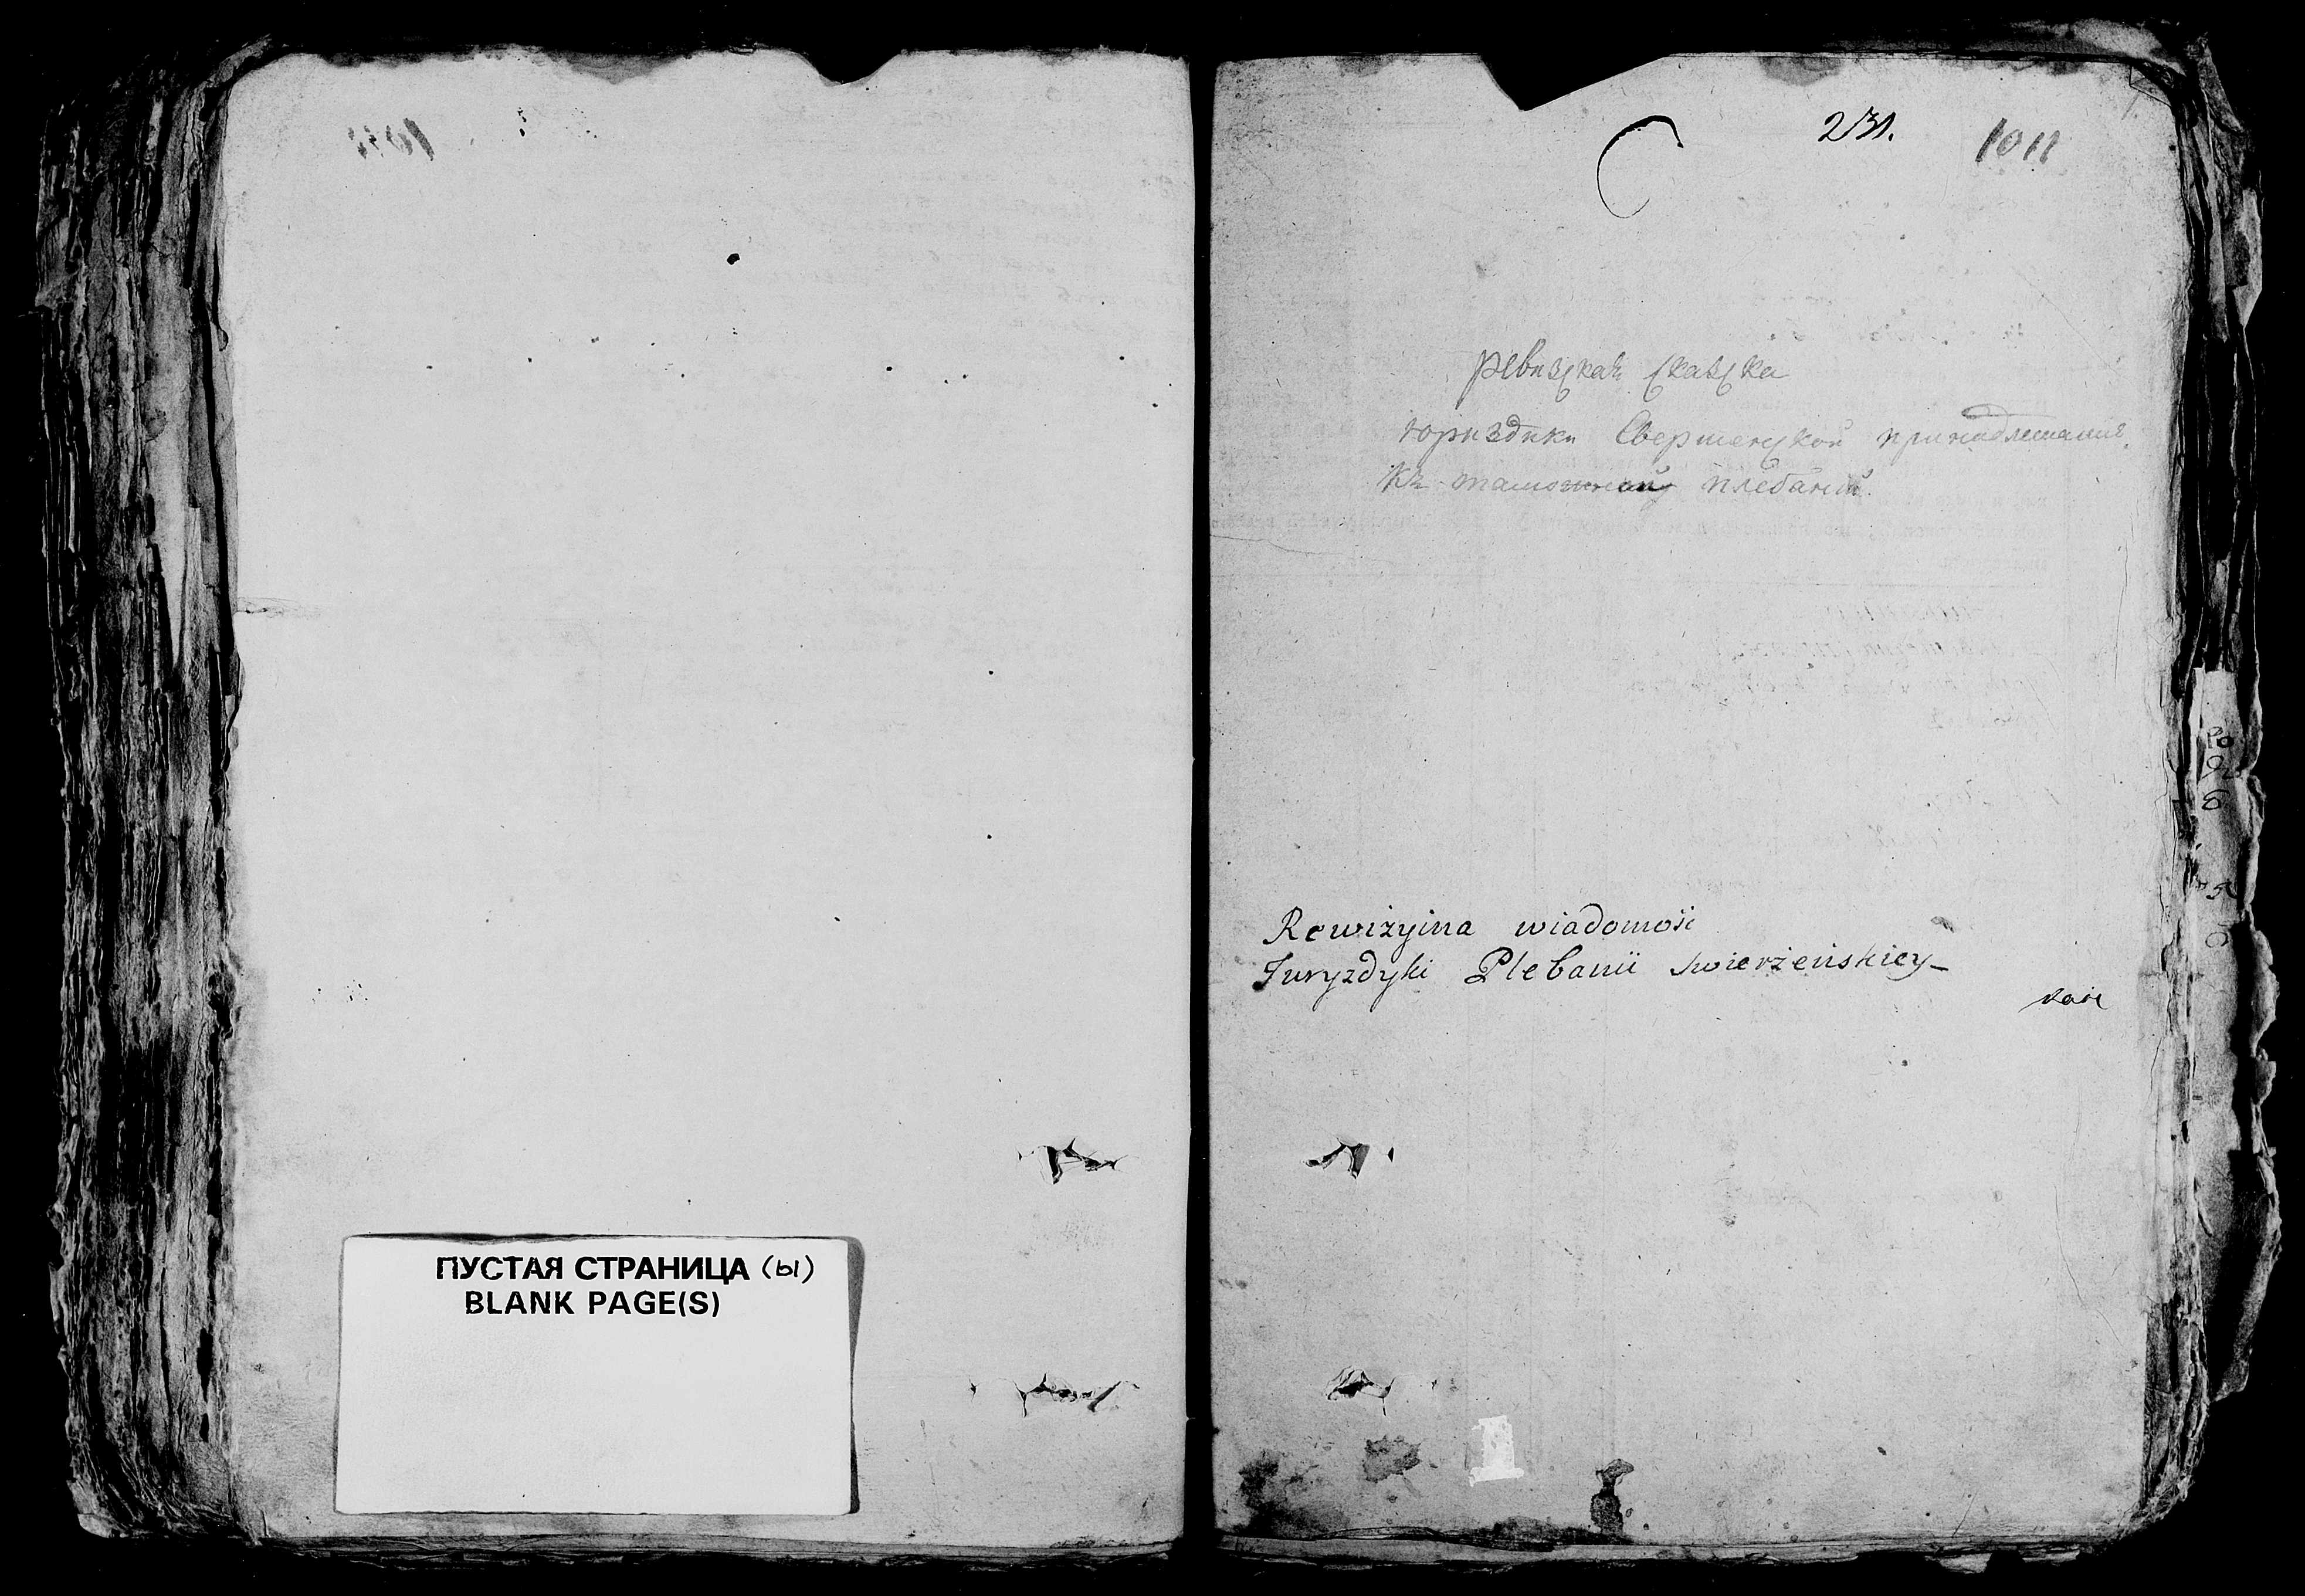 ПУСТАЯ СТРАНИЦА (ы)
BLANK PAGE(S)
231.
1011
ревизскаѧ сказска
юриздики Свержен­ской принадлежащие
къ тамошной плебании
Rewizyina wiadomość
Juryzdyki Plebanii Swierzeńskiey